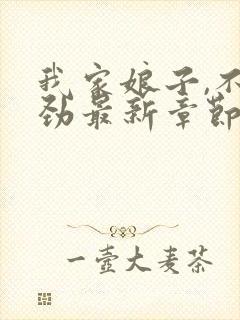 我家娘子,不
劲最新章節
一壺大麦茶